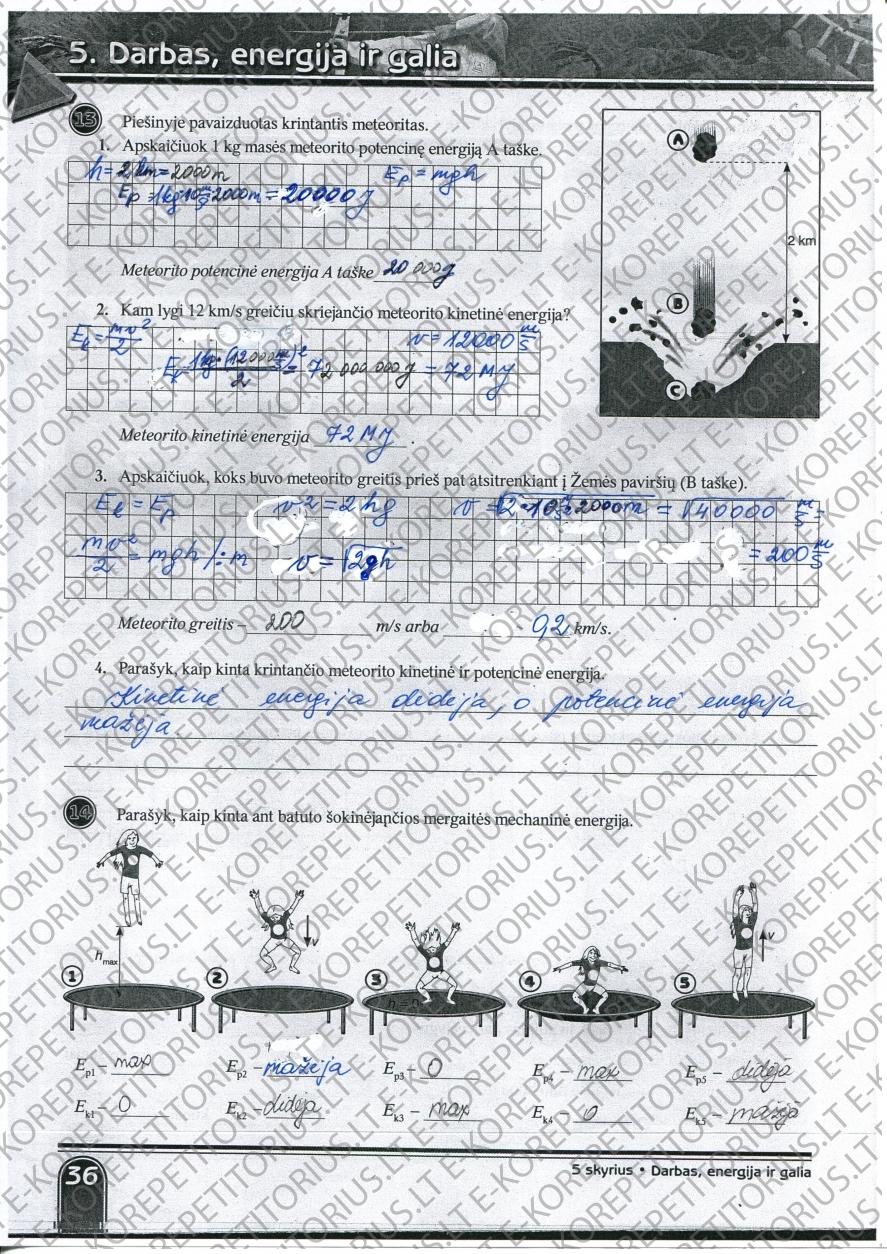 5. Darbas, energija ir galia
13 Piešinyje pavaizduotas krintantis meteoritas.
1. Apskaičiuok 1 kg masės meteorito potencinę energiją A taške.
h = 2 km = 2000m Ep = mgh
Ep = 1kg·10 m/s·2000m = 20000 J
Meteorito potencinė energija A taške 20 000 J
A
2 km
B
C
2. Kam lygi 12 km/s greičiu skriejančio meteorito kinetinė energija?
Ek = mv²/2 v = 12000 m/s
Ek = 1kg·(12000 m/s)²/2 = 72 000 000 J = 72 MJ
Meteorito kinetinė energija 72 MJ .
3. Apskaičiuok, koks buvo meteorito greitis prieš pat atsitrenkiant į Žemės paviršių (B taške).
Ek = Ep v² = 2hg v = √2·10 2000m = √40000 m/s =
mv²/2 = mgh /:m v = √2gh = 200 m/s
Meteorito greitis – 200 m/s arba 0,2 km/s.
4. Parašyk, kaip kinta krintančio meteorito kinetinė ir potencinė energija.
Kinetinė energija didėja, o potencinė energija
mažėja
14 Parašyk, kaip kinta ant batuto šokinėjančios mergaitės mechaninė energija.
hmax v v
1 2 3 4 5
Ep1 – max Ep2 – mažėja Ep3 – 0 Ep4 – max Ep5 – didėja
Ek1 – 0 Ek2 – didėja Ek3 – max Ek4 – 0 Ek5 – mažėja
36 5 skyrius • Darbas, energija ir galia
E-KOREPETITORIUS.LT